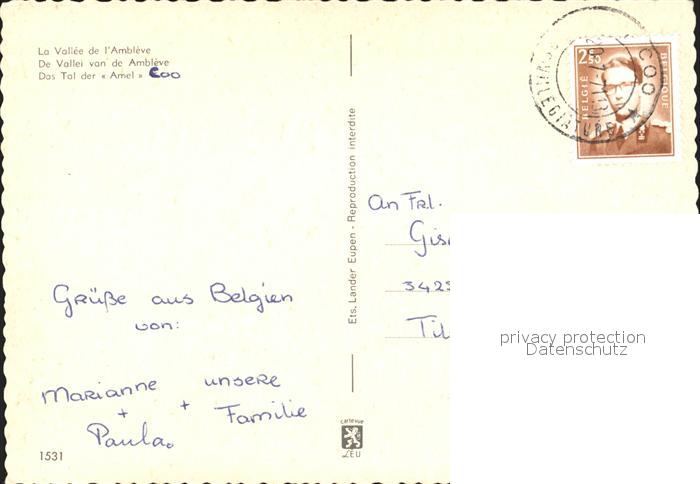 La Vallée de l'Amblève
De Vallei van de Amblève
Das Tal der « Amel » Coo
COO
2.50
BELGIË
BELGIQUE
Ets. Lander Eupen - Reproduction interdite
An Frl.
Gis
3429
Til
Grüße aus Belgien
von:
Marianne + unsere
+ Familie
Paula.
privacy protection
Datenschutz
cartevue
LEU
1531